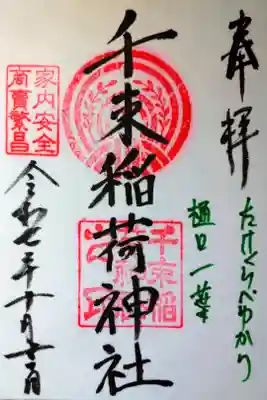 奉拝
たけくらべゆかり
樋口一葉
千束稲荷神社
家内安全
商賣繁昌
令和七年十月十二日